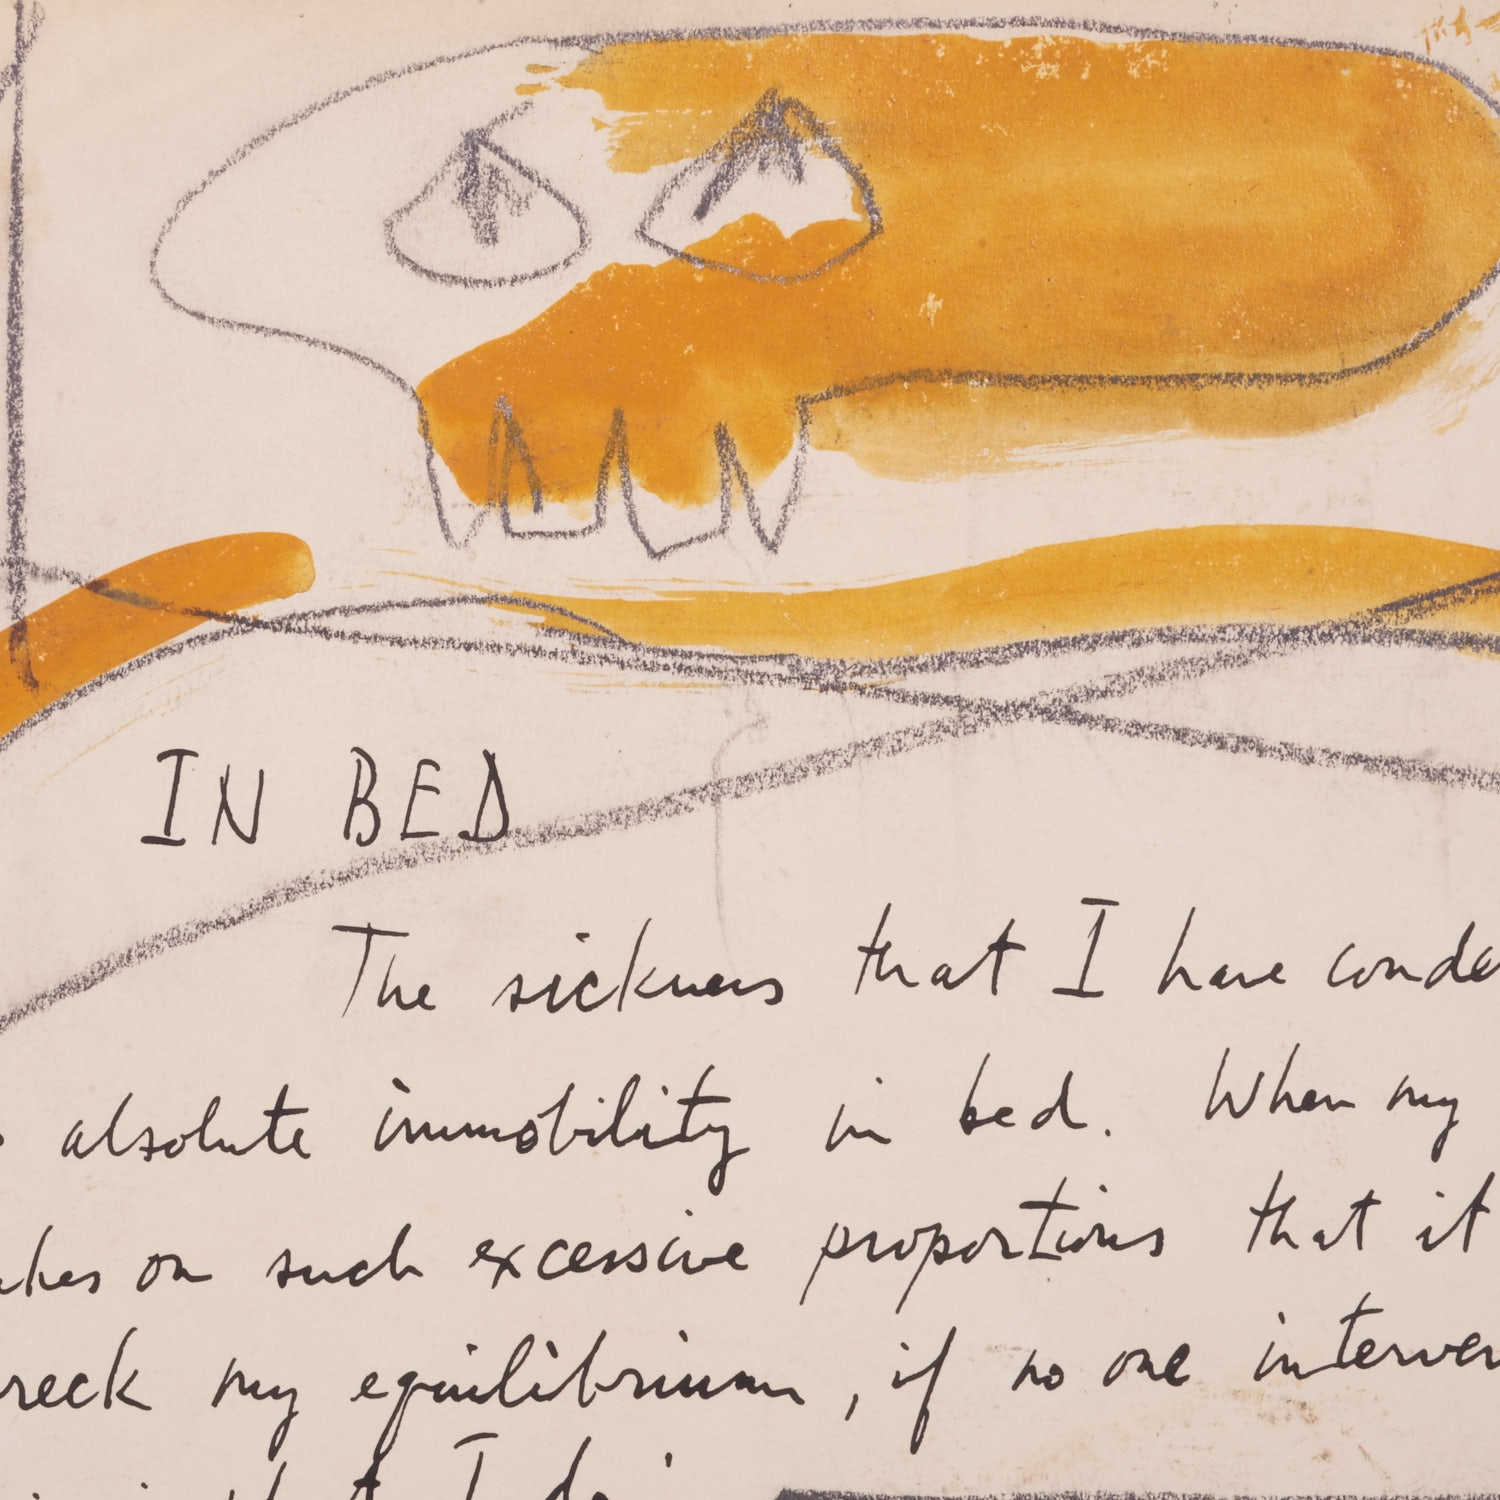 IN BED
The sickness that I have conde
absolute immobility in bed. When my
kes on such excessive proportions that it
reck my equilibrium, if no one interven
that I do